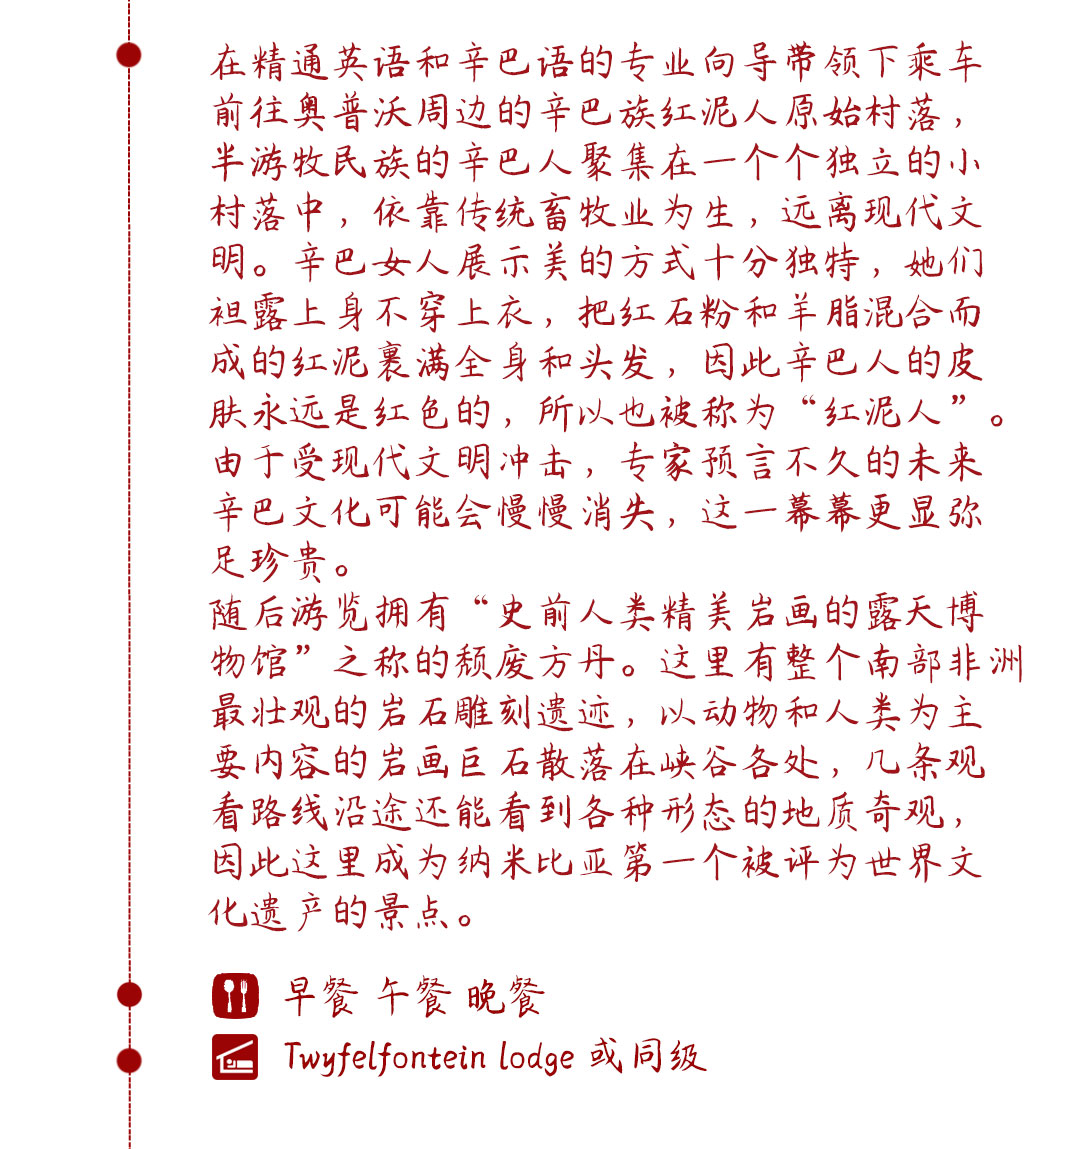 在精通英语和辛巴语的专业向导带领下乘车
前往奥普沃周边的辛巴族红泥人原始村落，
半游牧民族的辛巴人聚集在一个个独立的小
村落中，依靠传统畜牧业为生，远离现代文
明。辛巴女人展示美的方式十分独特，她们
袒露上身不穿上衣，把红石粉和羊脂混合而
成的红泥裹满全身和头发，因此辛巴人的皮
肤永远是红色的，所以也被称为“红泥人”。
由于受现代文明冲击，专家预言不久的未来
辛巴文化可能会慢慢消失，这一幕幕更显弥
足珍贵。
随后游览拥有“史前人类精美岩画的露天博
物馆”之称的颓废方丹。这里有整个南部非洲
最壮观的岩石雕刻遗迹，以动物和人类为主
要内容的岩画巨石散落在峡谷各处，几条观
看路线沿途还能看到各种形态的地质奇观，
因此这里成为纳米比亚第一个被评为世界文
化遗产的景点。
早餐 午餐 晚餐
Twyfelfontein lodge 或同级